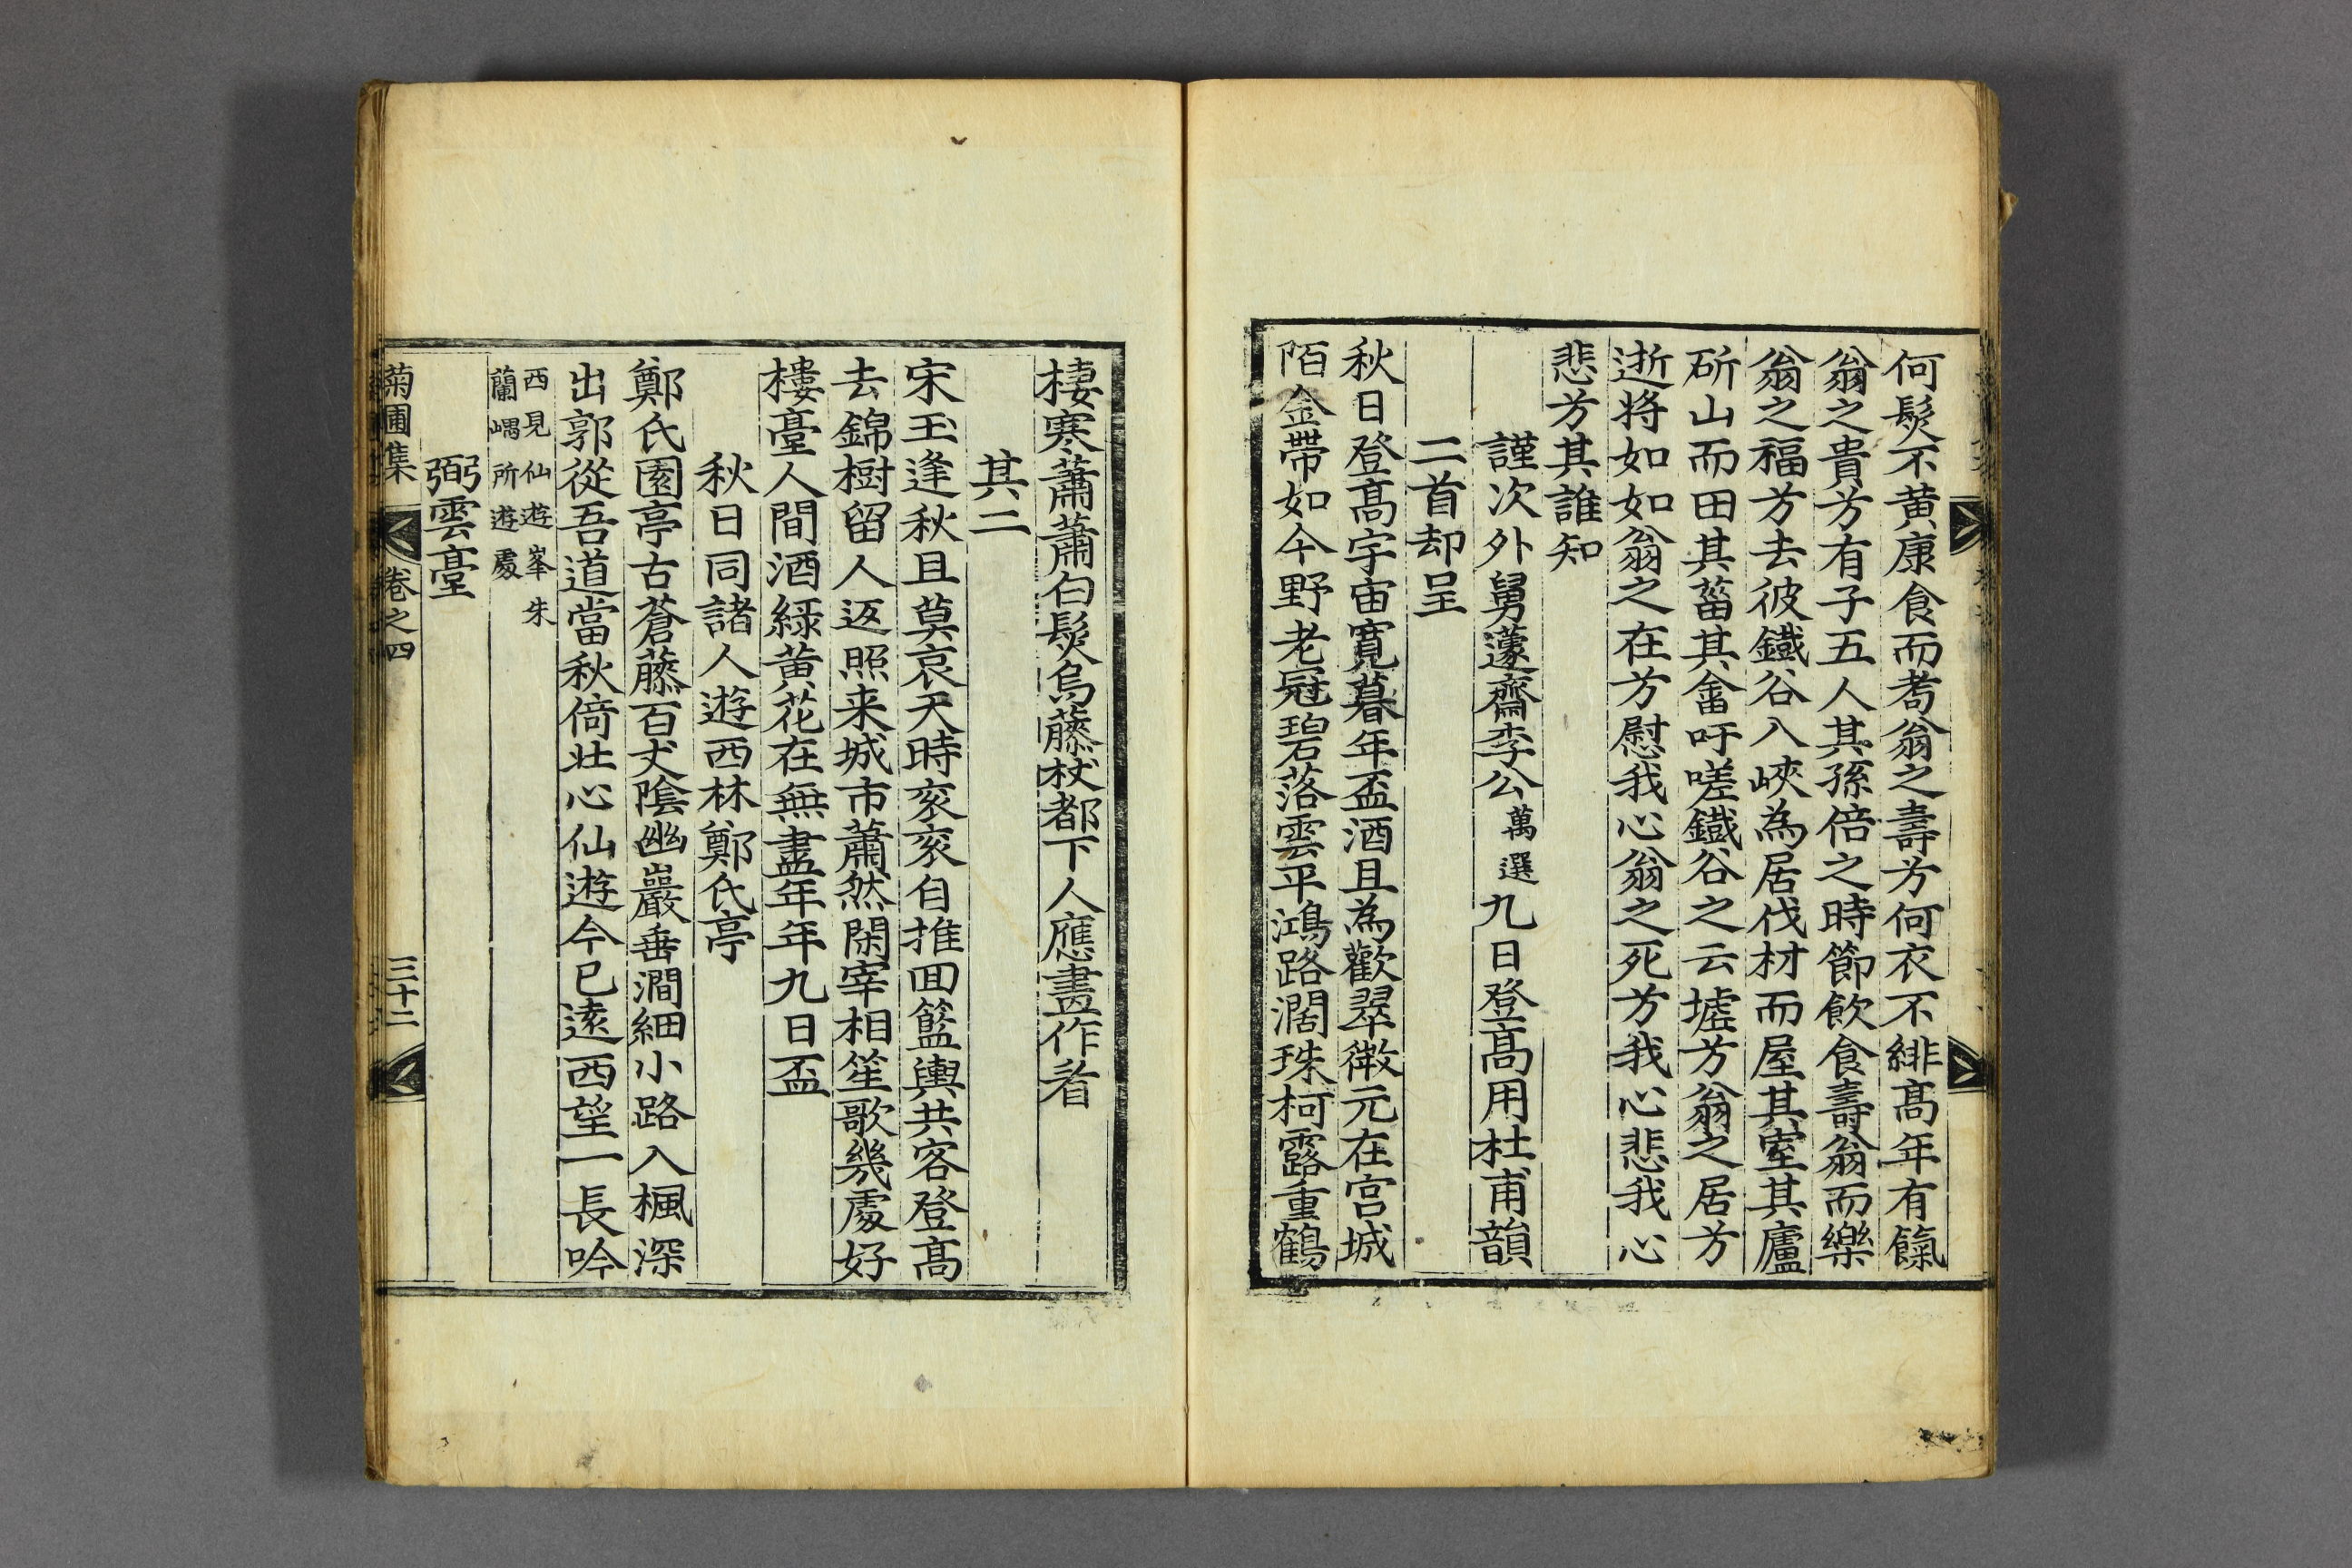 何鬓不黄康食而耇翁之壽芳何衣不緋髙年有餼
翁之貴芳有子五人其孫倍之時節飲食壽翁而樂
翁之福芳去彼鐵谷入峽為居伐材而屋其室其廬
斫山而田其菑其畬吁嗟鐵谷之云墟芳翁之居芳
逝将如如翁之在芳慰我心翁之死芳我心悲我心
悲芳其誰知
謹次外舅蘧齋李公萬選九日登髙用杜甫韻
二首却呈
秋日登髙宇宙寛暮年盃酒且為歡翠微元在宫城
陌金帶如今野老冠碧落雲平鴻路濶珠柯露重鶴
棲寒蕭蕭白鬓烏藤杖都下人應畫作看
其二
宋玉逢秋且莫哀天時衮衮自推囬籃輿共客登髙
去錦樹留人返照来城市蕭然閑宰相笙歌幾處好
樓臺人間酒綠黄花在無盡年年九日盃
秋日同諸人遊西林鄭氏亭
鄭氏園亭古蒼藤百丈隂幽巖垂澗細小路入楓深
出郭從吾道當秋倚壮心仙遊今已遠西望一長吟
西見仙遊峯朱
蘭嵎所遊處
弼雲臺
菊圃集 卷之四 三十二